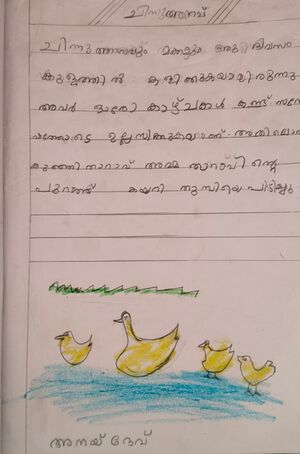 ചിന്നുത്താറാവ്
ചിന്നു ത്താറാവും മക്കളും ഒരു ദിവസം
കുളത്തിൽ കുളിക്കുകയായിരുന്നു
അവർ ഓരോ കാഴ്ചകൾ കണ്ട് സന്തോ
ഷത്തോടെ ഉല്ലസിക്കുകയാണ്. അതിലൊരു
കുഞ്ഞി താറാവ് അമ്മ താറാവിന്റെ
പുറത്ത് കയറി തുമ്പിയെ പിടിച്ചു
അനയ് ദേവ്